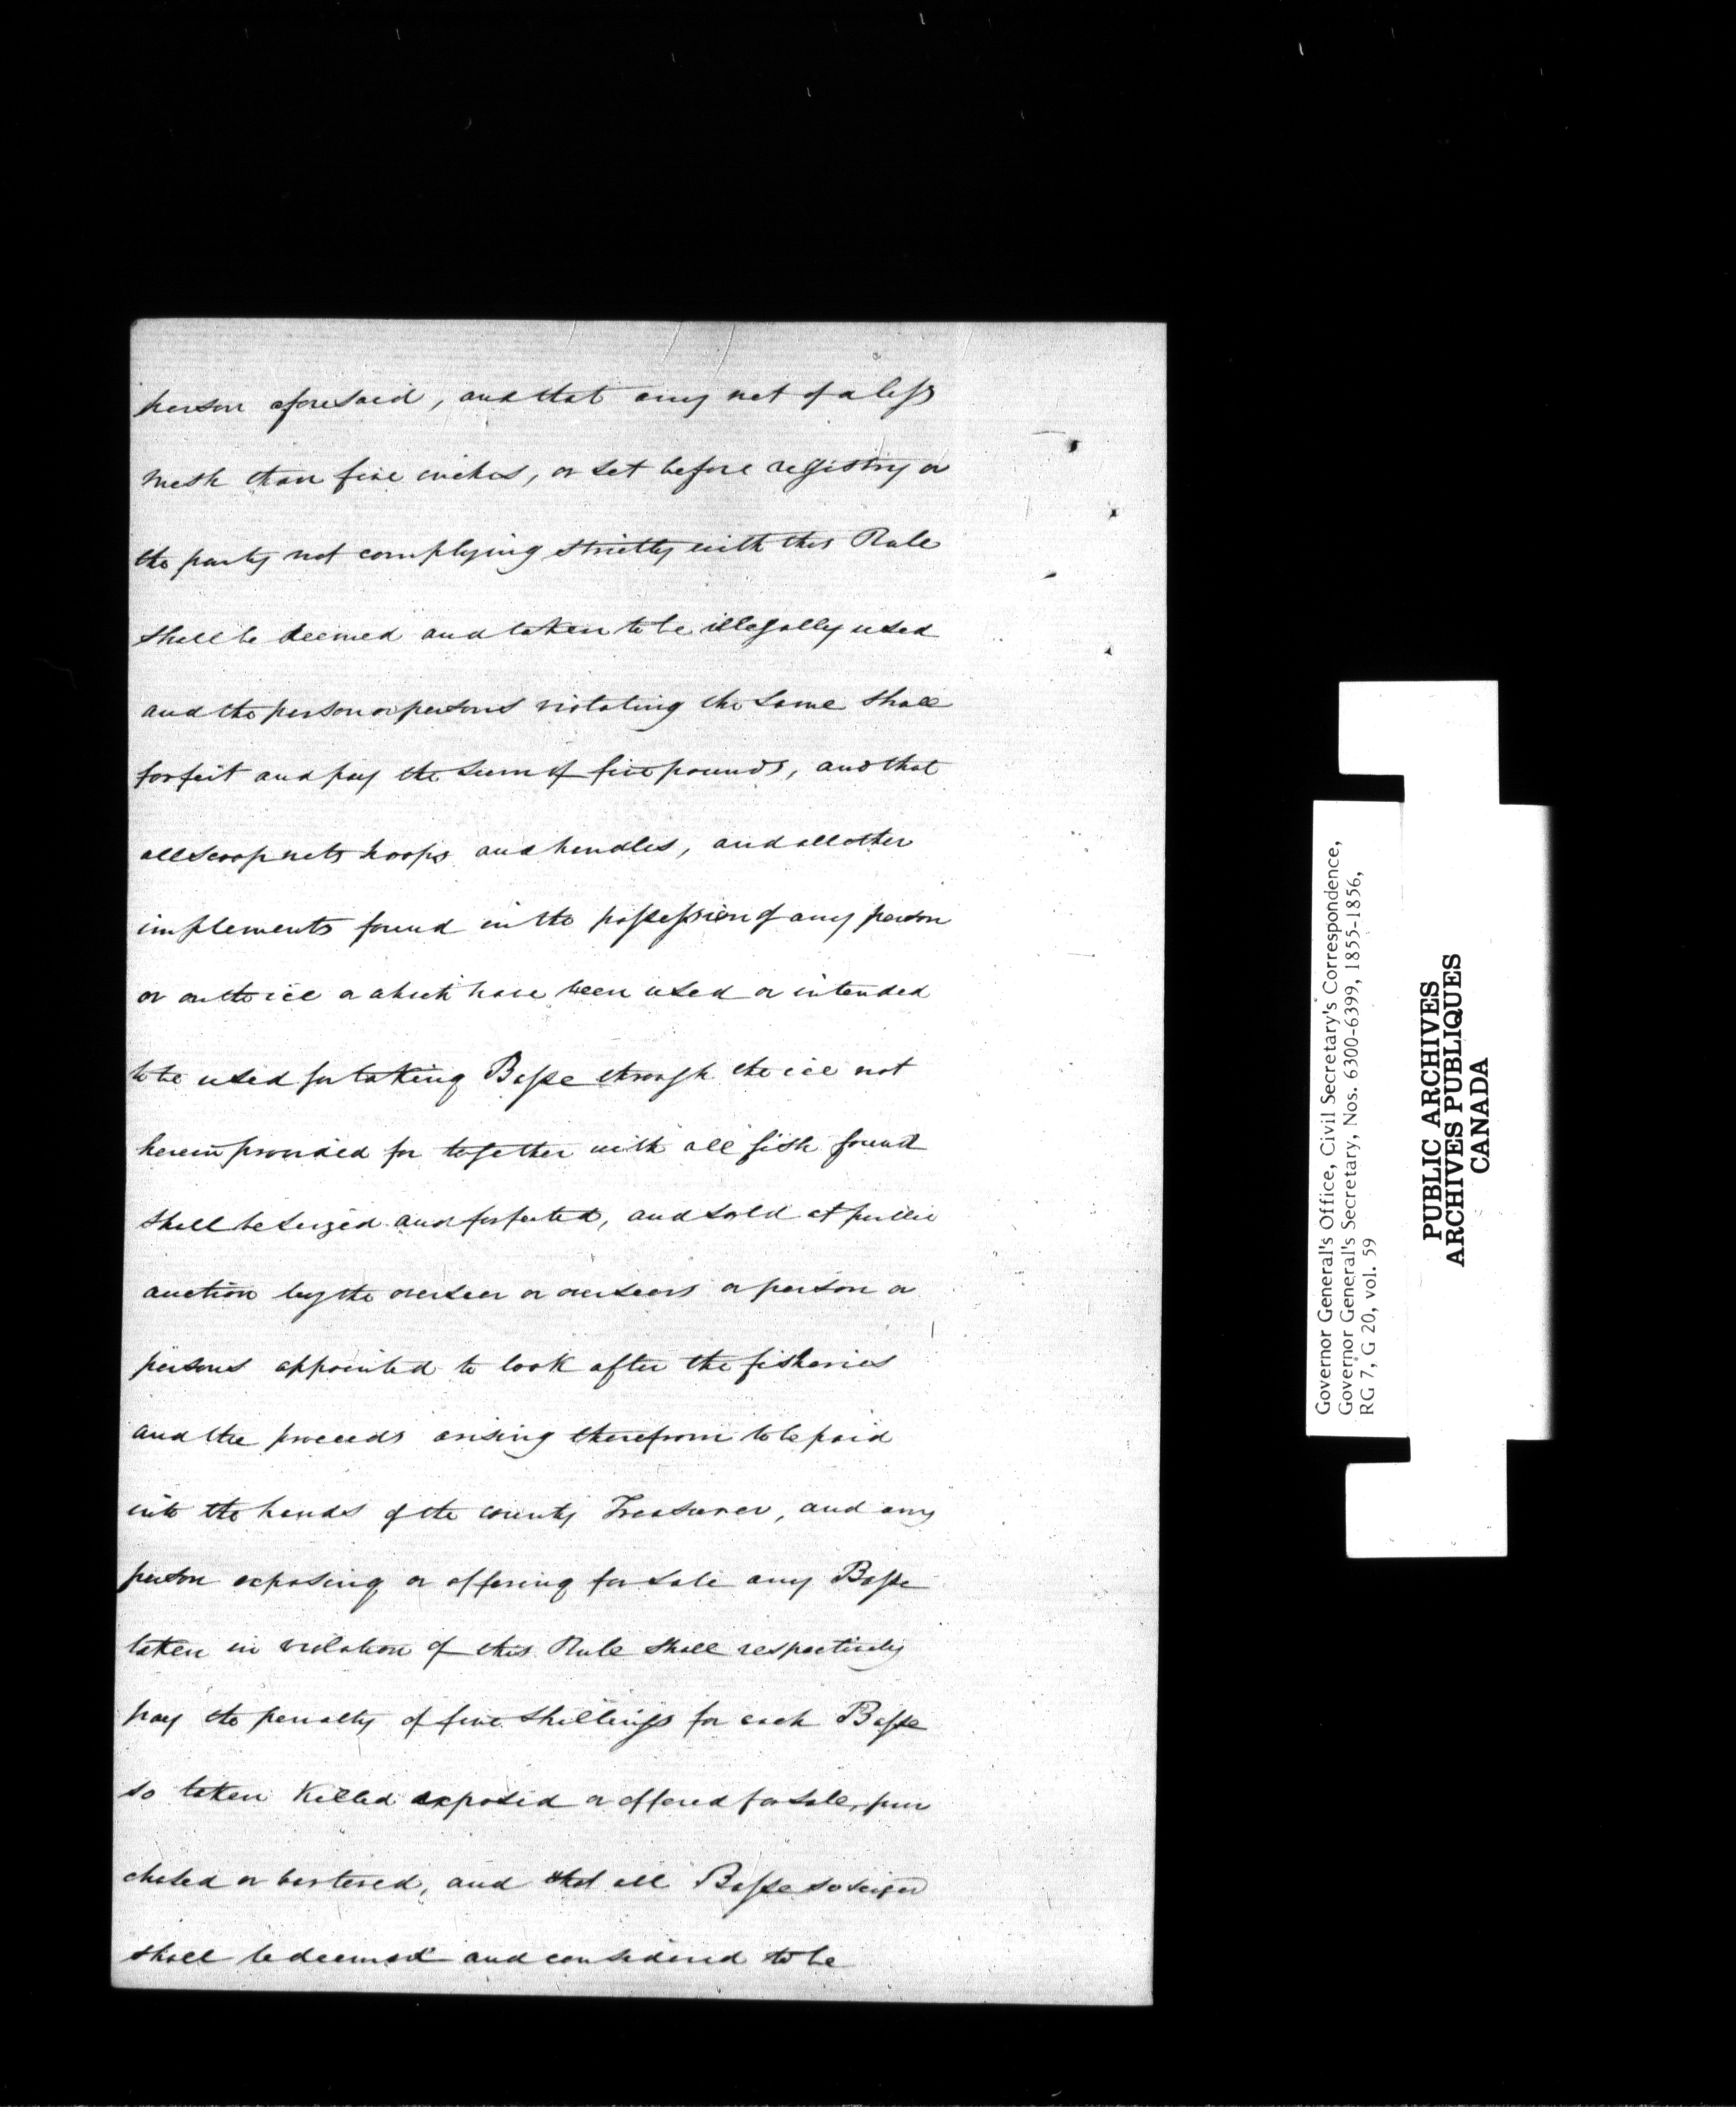 person aforesaid, and that any net of a less
mesh than five inches, or set before registry or
the party not complying strictly with this Rule
shall be deemed and taken to be illegally used
and the person or persons violating the same shall
forfeit and pay the sum of five pounds, and that
all scoop nets hoops and handles, and all other
implements found in the possession of any person
or on the ice or which have been used or intended
to be used for taking Basse through the ice not
herein provided for together with all fish found
shall be seized and forfeited, and sold at public
auction by the overseer or overseers or person or
persons appointed to look after the fisheries
and the proceeds arising therefrom to be paid
into the hands of the county Treasurer, and any
person exposing or offering for sale any Basse
taken in violation of this Rule shall respectively
pay the penalty of five shillings for each Basse
so taken Killed exposed or offered for sale, pur
chased or bartered, and that all Basse so seized
shall be deemed and considered to be
Governor General's Office, Civil Secretary's Correspondence,
Governor General's Secretary, Nos. 6300-6399, 1855-1856,
RG 7, G 20, vol. 59
PUBLIC ARCHIVES
ARCHIVES PUBLIQUES
CANADA